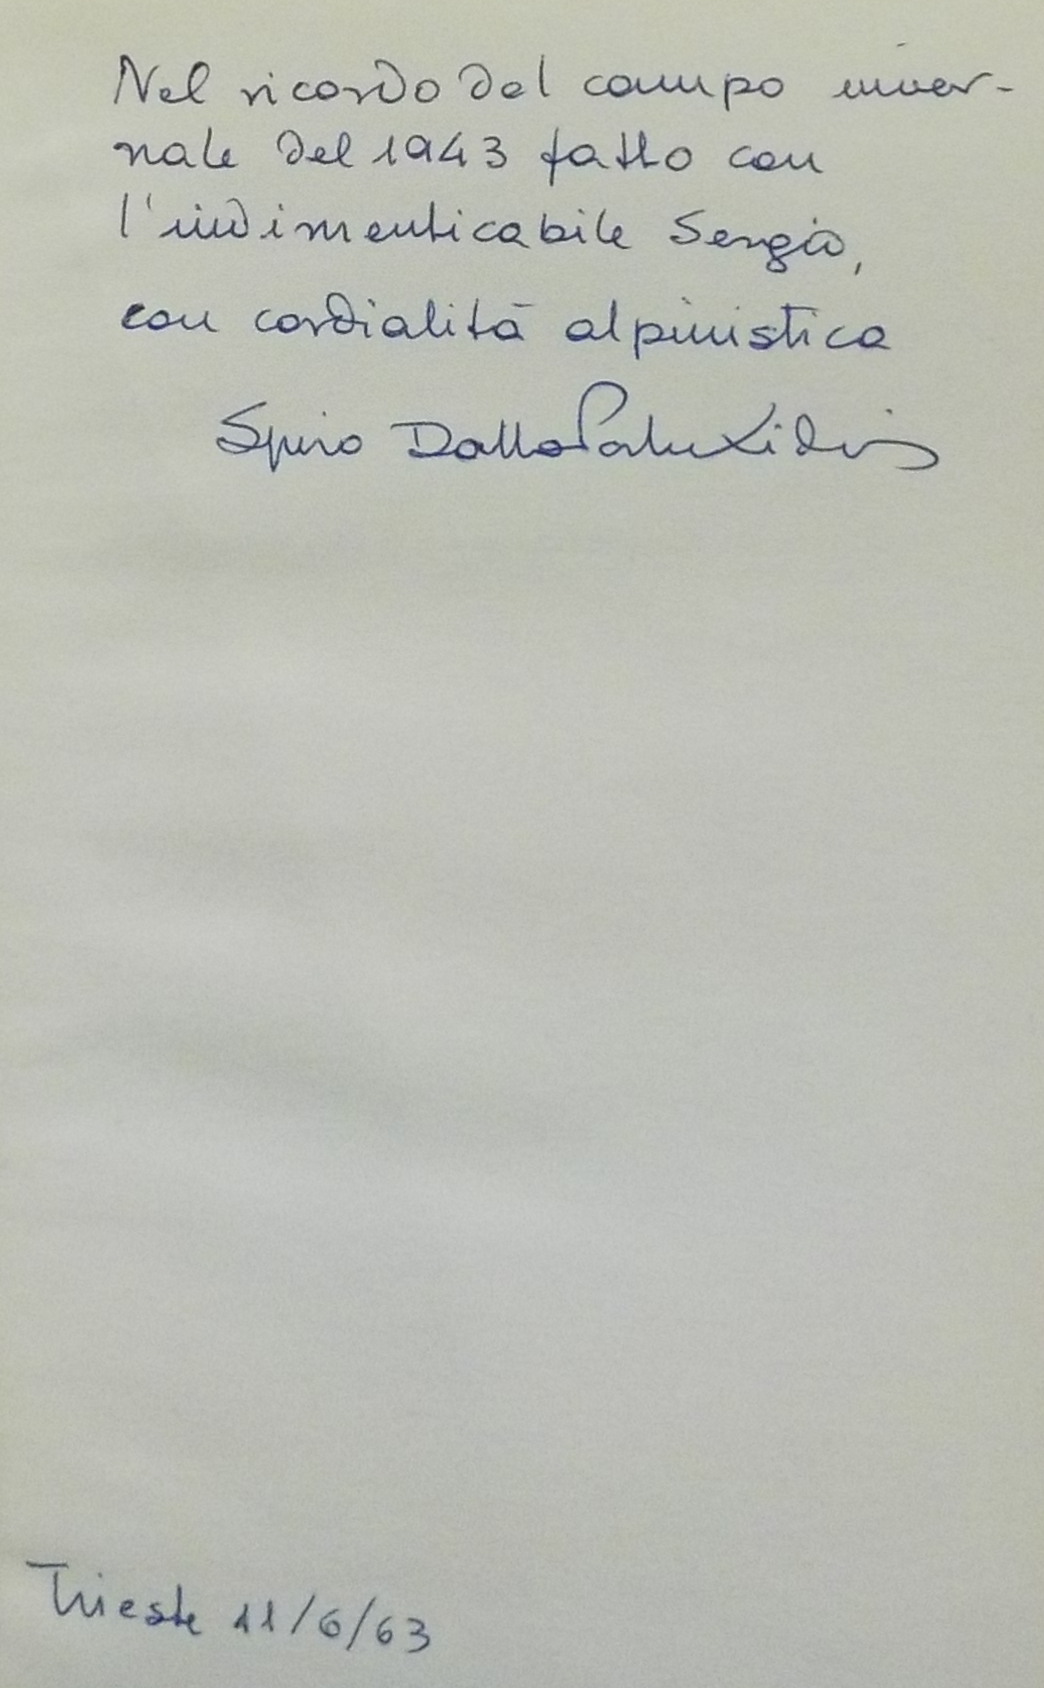 Nel ricordo del campo inver-
nale del 1943 fatto con
l'indimenticabile Sergio,
con cordialità alpinistica
Spiro Dalla Porta Xidis
Trieste 11/6/63